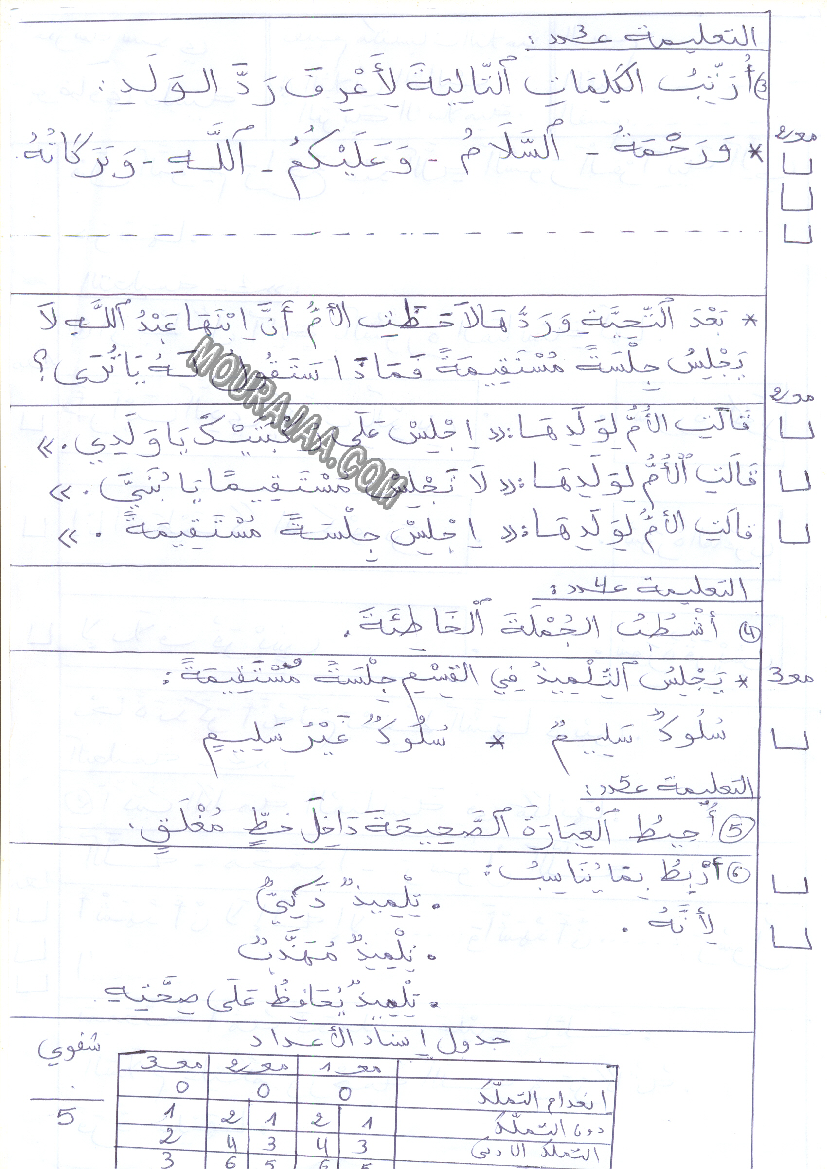 التعليمة عـ3ـدد :
3) أُرَتِّبُ الكَلِمَاتِ ٱلتَّالِيَةَ لِأَعْرِفَ رَدَّ الوَلَدِ :
مع2
* وَرَحْمَةُ - ٱلسَّلَامُ - وَعَلَيْكُمُ - ٱللَّهِ - وَبَرَكَاتُهُ.
* بَعْدَ ٱلتَّحِيَّةِ وَرَدِّهَا لَاحَظَتِ الأُمُّ أَنَّ اِبْنَهَا عَبْدُ ٱللَّهِ لَا
يَجْلِسُ جِلْسَةً مُسْتَقِيمَةً فَمَاذَا سَتَقُولُ لَهُ يَا تُرَى؟
مع2
قَالَتِ الأُمُّ لِوَلَدِهَا :«اِجْلِسْ عَلَى رُكْبَتَيْكَ يَا وَلَدِي.»
قَالَتِ ٱلْأُمُّ لِوَلَدِهَا :«لَا تَجْلِسْ مُسْتَقِيمًا يَا بُنَيَّ.»
قَالَتِ الأُمُّ لِوَلَدِهَا :«اِجْلِسْ جِلْسَةً مُسْتَقِيمَةً.»
MOURAJAA.COM
التعليمة عـ4ـدد :
4) أَشْطُبُ الجُمْلَةَ ٱلْخَاطِئَةَ.
مع3
* يَجْلِسُ ٱلتِّلْمِيذُ فِي القِسْمِ جِلْسَةً مُسْتَقِيمَةً :
سُلُوكٌ سَلِيمٌ * سُلُوكٌ غَيْرُ سَلِيمٍ
التعليمة عـ5ـدد :
5) أُحِيطُ ٱلْعِبَارَةَ ٱلصَّحِيحَةَ دَاخِلَ خَطٍّ مُغْلَقٍ.
6) أَرْبِطُ بِمَا يُنَاسِبُ :
• تِلْمِيذٌ ذَكِيٌّ
لِأَنَّهُ •
• تِلْمِيذٌ مُهَذَّبٌ
• تِلْمِيذٌ يُحَافِظُ عَلَى صِحَّتِهِ
جدول إسناد الأعداد
شفوي
5
مع1 مع2 مع3
انعدام التملّك 0 0 0
دون التملّك 1 2 1 2 1
التملك الأدنى 3 4 3 4 2
5 6 5 6 3